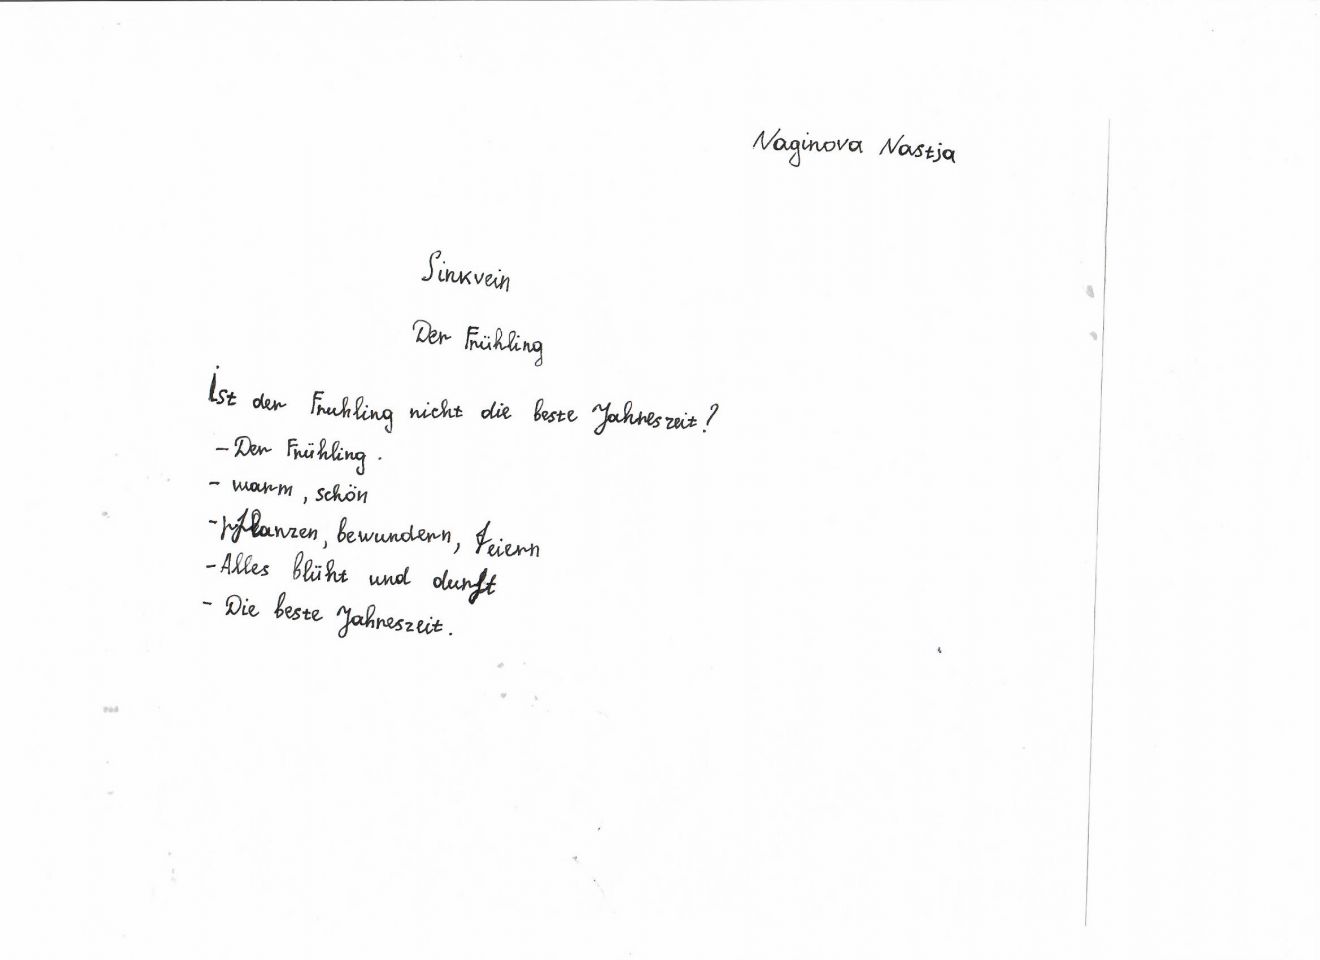 Naginova Nastja
Sinkvein
Der Frühling
Ist der Fruhling nicht die beste Jahreszeit?
- Der Frühling.
- warm, schön
- pflanzen, bewundern, feiern
- Alles blüht und durft
- Die beste Jahreszeit.